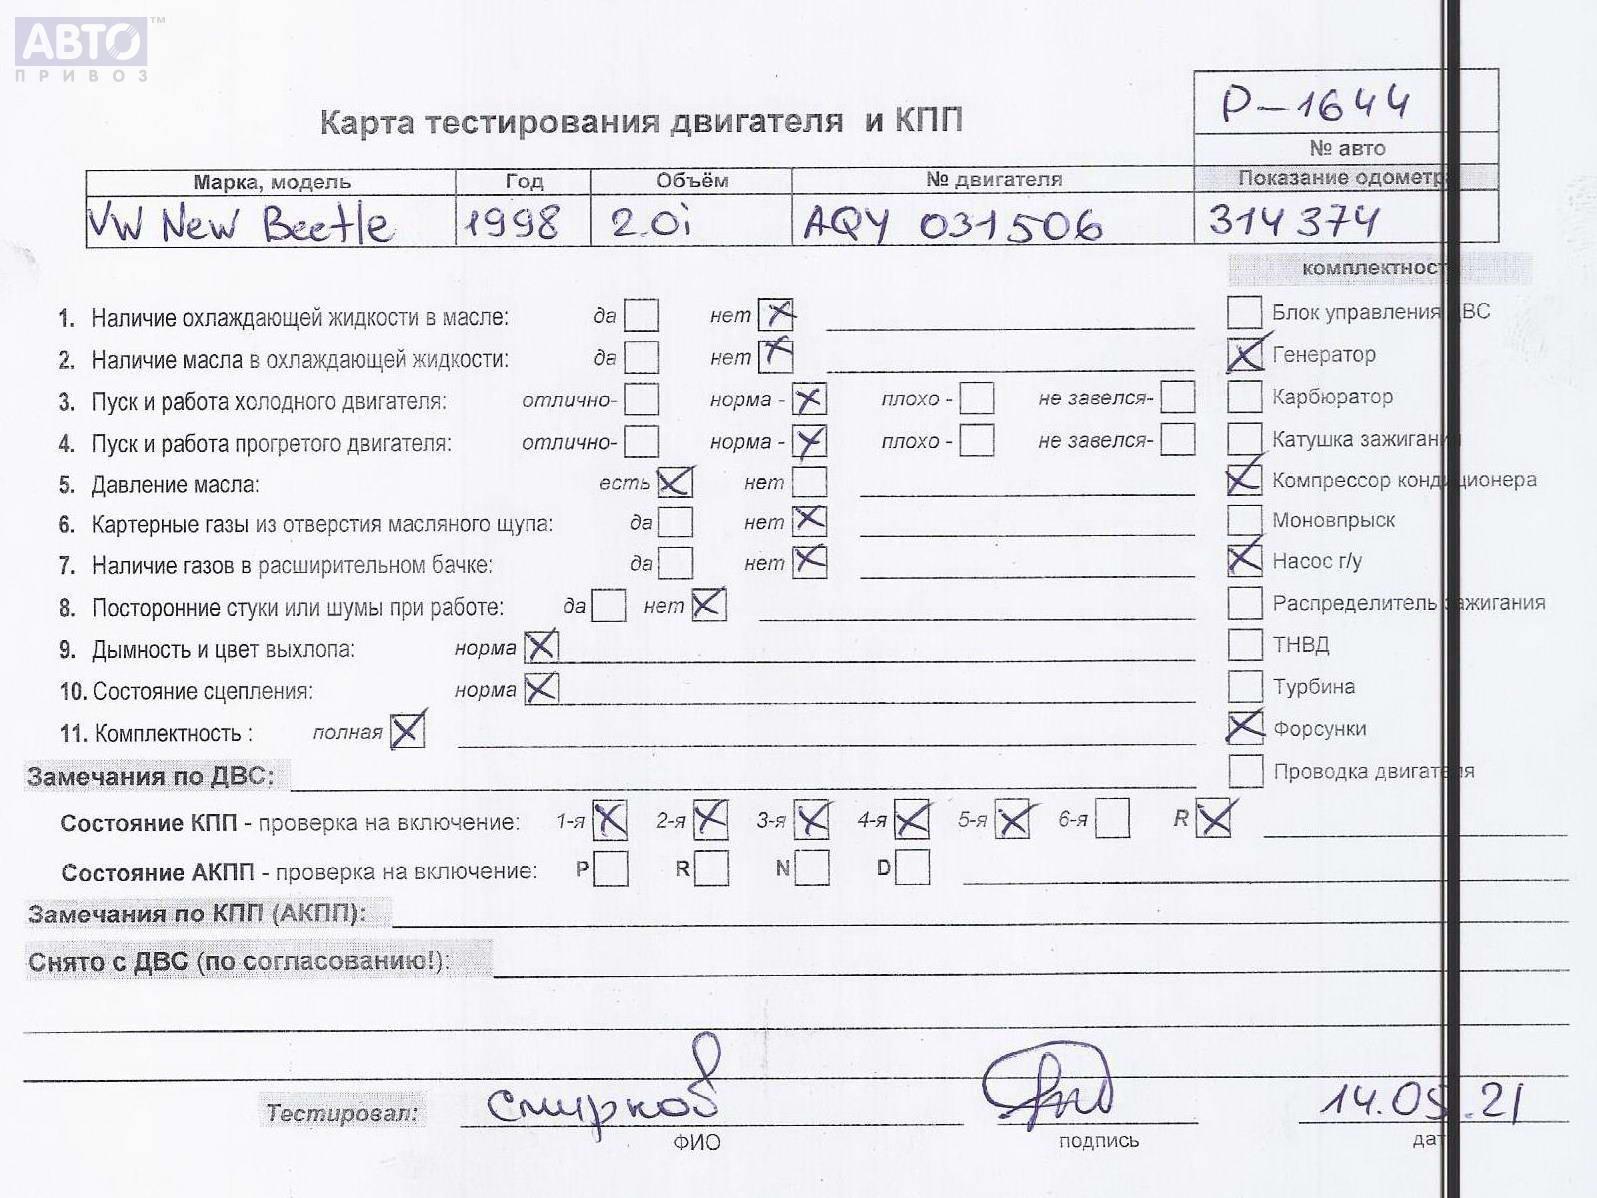 АВТО™
ПРИВОЗ
P-1644
Карта тестирования двигателя и КПП
№ авто
Марка, модель Год Объём № двигателя Показание одометра
VW New Beetle 1998 2.0i AQY 031506 314374
комплектность
1. Наличие охлаждающей жидкости в масле: да нет Блок управления ДВС
2. Наличие масла в охлаждающей жидкости: да нет Генератор
3. Пуск и работа холодного двигателя: отлично- норма - плохо - не завелся- Карбюратор
4. Пуск и работа прогретого двигателя: отлично- норма - плохо - не завелся- Катушка зажигания
5. Давление масла: есть нет Компрессор кондиционера
6. Картерные газы из отверстия масляного щупа: да нет Моновпрыск
7. Наличие газов в расширительном бачке: да нет Насос г/у
8. Посторонние стуки или шумы при работе: да нет Распределитель зажигания
9. Дымность и цвет выхлопа: норма ТНВД
10. Состояние сцепления: норма Турбина
11. Комплектность : полная Форсунки
Замечания по ДВС: Проводка двигателя
Состояние КПП - проверка на включение: 1-я 2-я 3-я 4-я 5-я 6-я R
Состояние АКПП - проверка на включение: P R N D
Замечания по КПП (АКПП):
Снято с ДВС (по согласованию!):
Тестировал: Смирнов 14.05.21
ФИО подпись дата